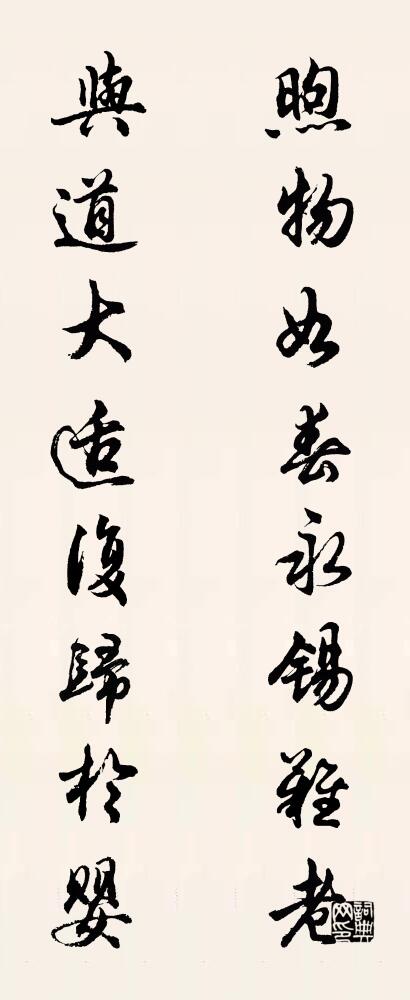 煦物如春永锡難老
與道大适復歸於嬰
詞典网印